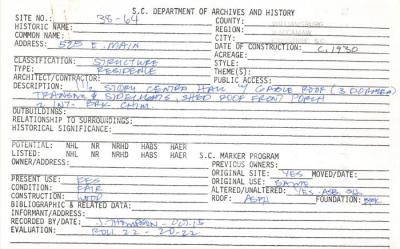 S.C. DEPARTMENT OF ARCHIVES AND HISTORY
SITE NO.: 38-64 COUNTY: WILLIAMSBURG
HISTORIC NAME: REGION:
COMMON NAME: CITY:
ADDRESS: E. MAIN DATE OF CONSTRUCTION: C. 1930
ACREAGE:
CLASSIFICATION: STRUCTURE STYLE:
TYPE: RESIDENCE THEME(S):
ARCHITECT/CONTRACTOR: PUBLIC ACCESS:
DESCRIPTION: 1½ STORY CENTER HALL W/ GABLE ROOF (3 DORMERS)
TRANSOM & SIDELIGHTS, SHED ROOF FRONT PORCH
2 INT. BRK CHIM.
OUTBUILDINGS:
RELATIONSHIP TO SURROUNDINGS:
HISTORICAL SIGNIFICANCE:
POTENTIAL: NHL NR NRHD HABS HAER
LISTED: NHL NR NRHD HABS HAER S.C. MARKER PROGRAM
OWNER/ADDRESS: PREVIOUS OWNERS:
ORIGINAL SITE: YES MOVED/DATE:
PRESENT USE: RES ORIGINAL USE: SAME
CONDITION: FAIR ALTERED/UNALTERED: YES-
CONSTRUCTION: WOOD ROOF: ASPH FOUNDATION: BRK
BIBLIOGRAPHIC & RELATED DATA:
INFORMANT/ADDRESS:
RECORDED BY/DATE: J. THOMPSON -
EVALUATION: ROLL 22 - 20-22